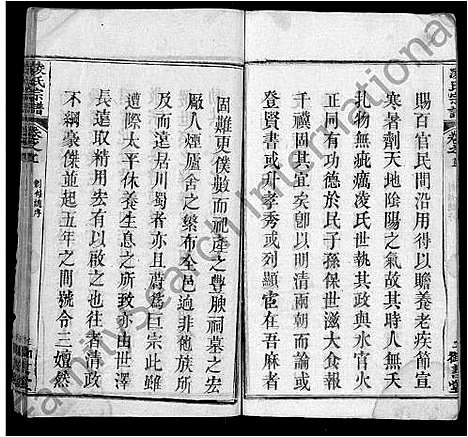 凌氏宗譜
卷之首
賜百官民間沿用得以贍養老疾節宣
寒暑劑天地陰陽之氣故其時人無夭
札物無疵癘凌氏世執其政與水官火
正同有功德於民子孫保世滋大食報
千禩固其宜矣卽以明清兩朝而論或
登賢書或列孝秀或列顯宦在吾麻者
固難更僕數而祀產之豐腴祠墓之宏
厰人煙廬舍之櫐布全邑過非他族所
及而遠居川蜀者亦且蔚爲巨宗此雖
遭際太平休養生息之所致亦由世澤
長遠取精者宏有以啟之也往者清政
不綱豪傑並起五年之間號令三嬗然
凌氏宗譜
卷之首
創修譜序
Earnitysearch International